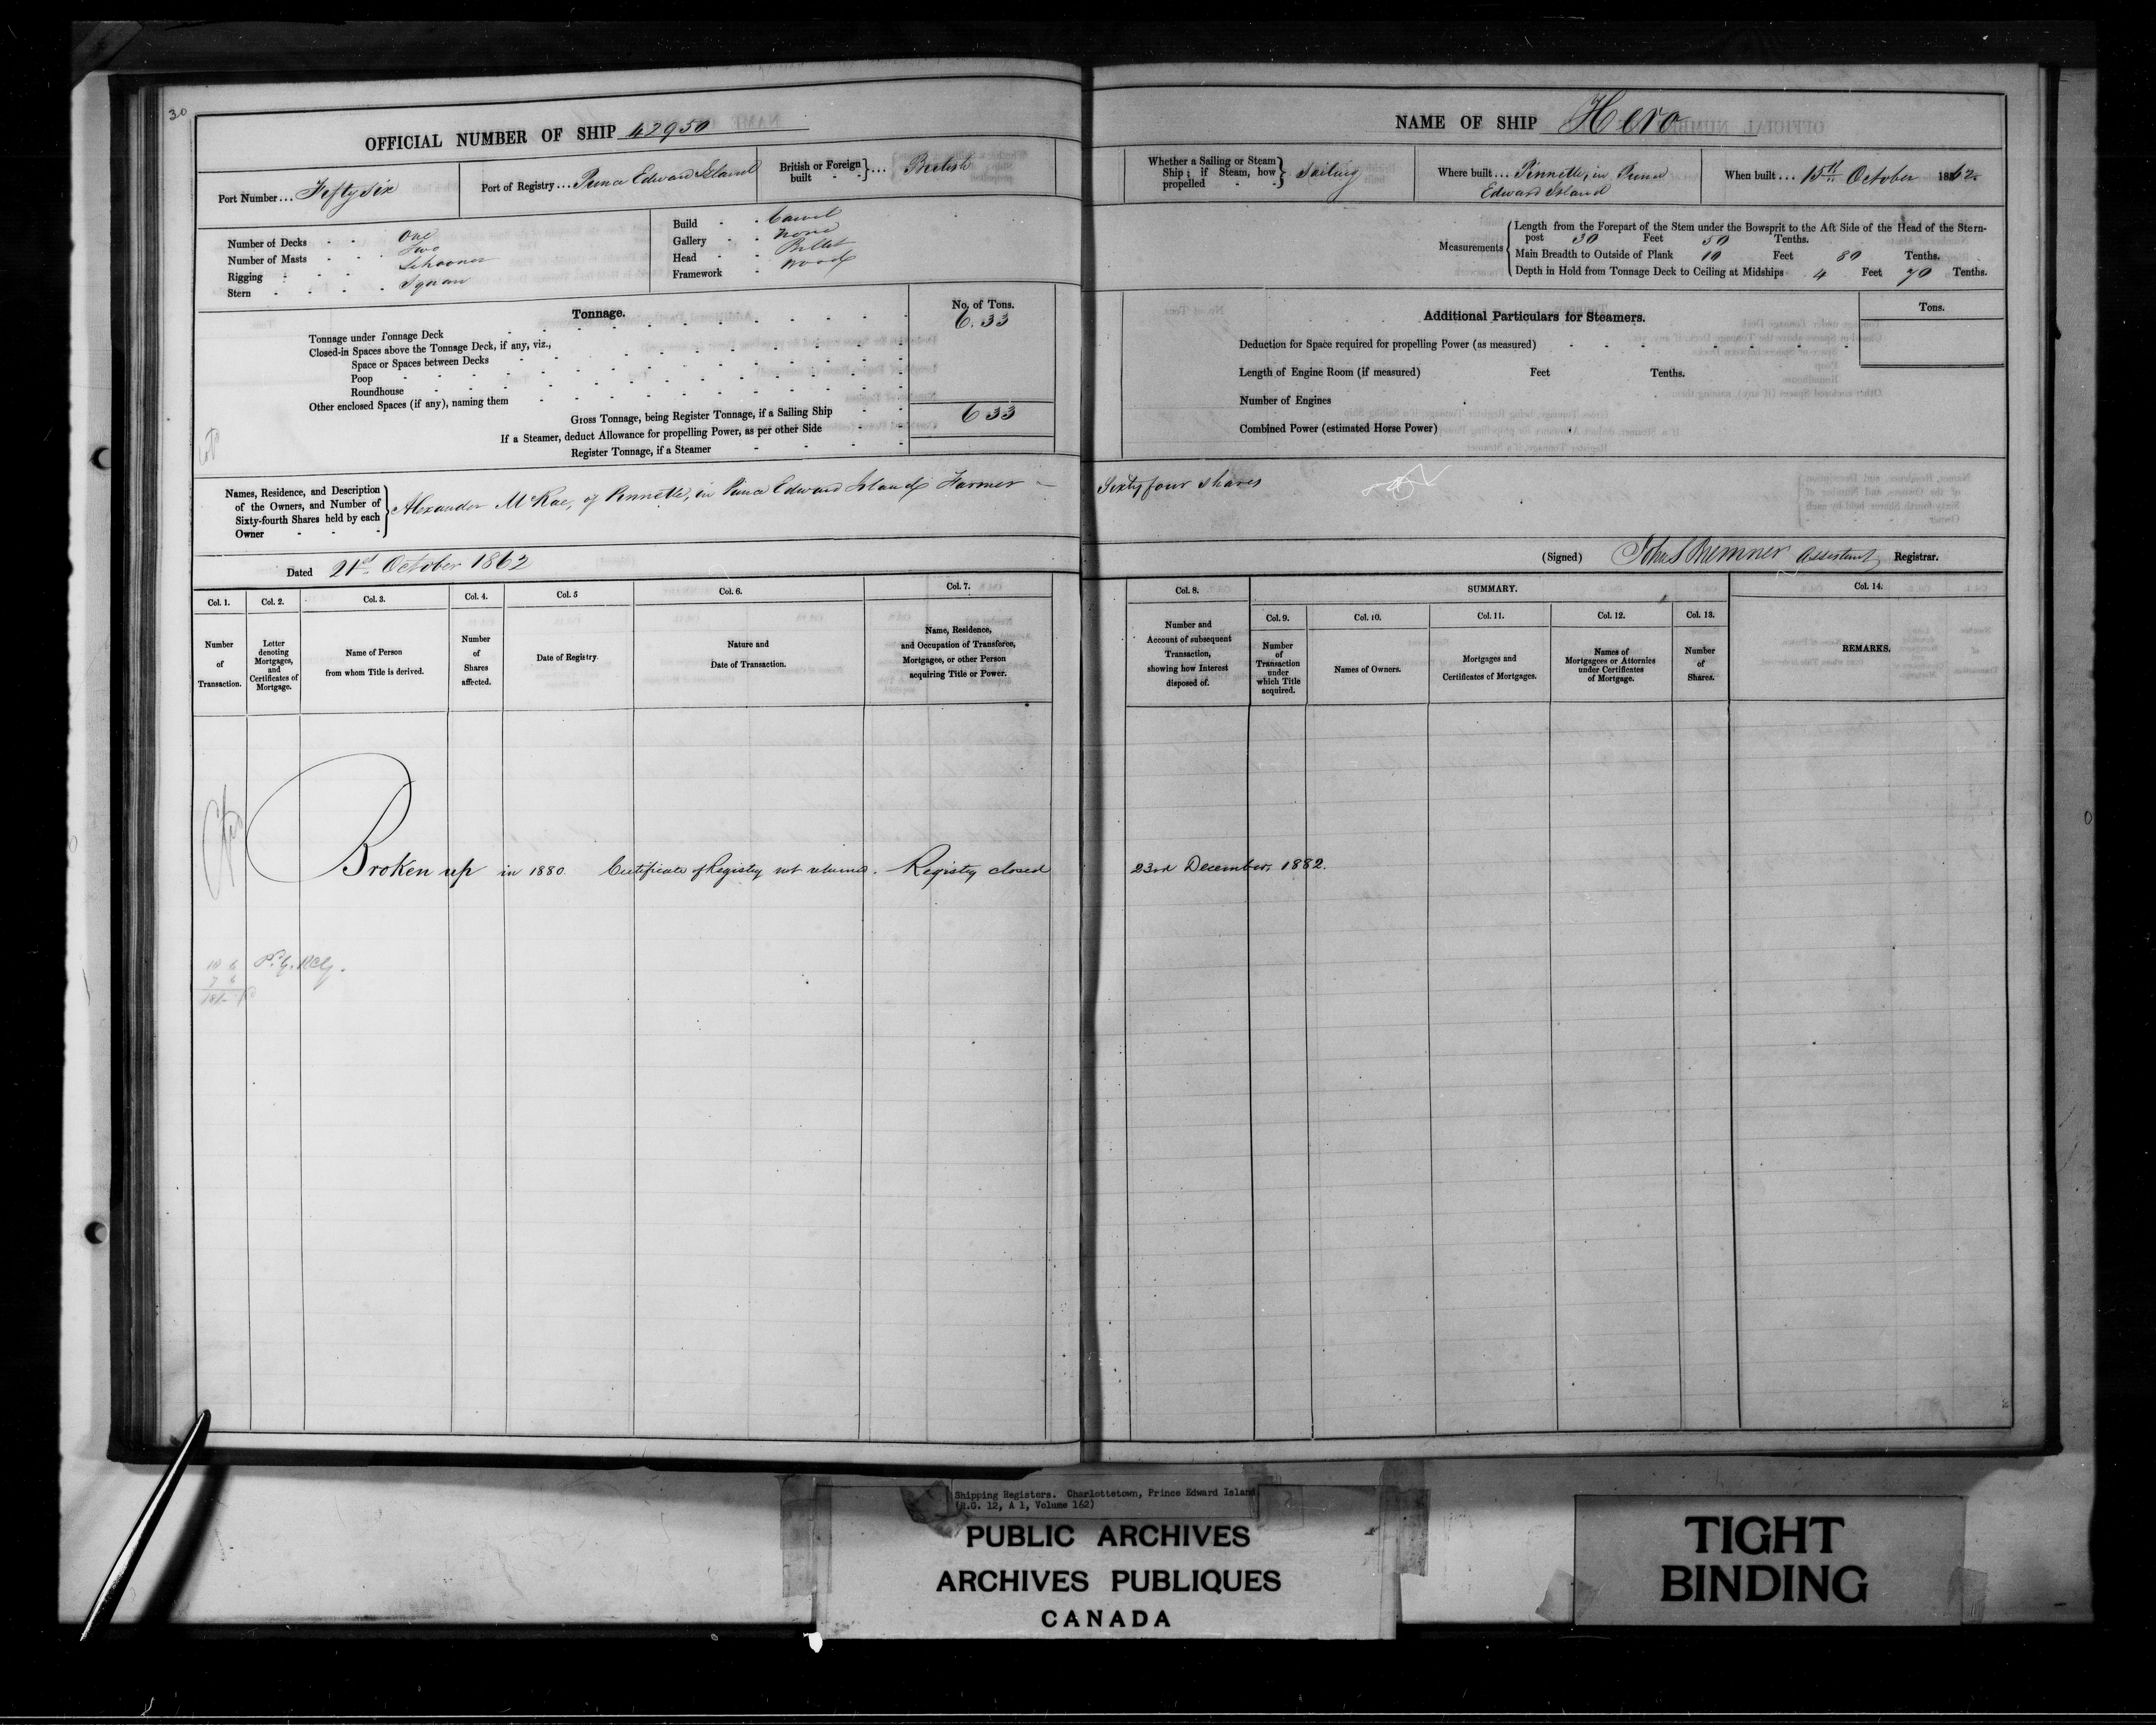 30
OFFICIAL NUMBER OF SHIP 42950
Port Number ... Fifty six
Port of Registry ... Prince Edward Island
British or Foreign built - - } ... British
Number of Decks - - One
Number of Masts - - Two
Rigging - - Schooner
Stern - - Square
Build - - Carvel
Gallery - - None
Head - - Billet
Framework - Wood
Tonnage.
No. of Tons.
Tonnage under Tonnage Deck 6.33
Closed-in Spaces above the Tonnage Deck, if any, viz.,
Space or Spaces between Decks
Poop
Roundhouse
Other enclosed Spaces (if any), naming them
Gross Tonnage, being Register Tonnage, if a Sailing Ship 6 33
If a Steamer, deduct Allowance for propelling Power, as per other Side
Register Tonnage, if a Steamer
Names, Residence, and Description
of the Owners, and Number of
Sixty-fourth Shares held by each
Owner - - -
Alexander McRae, of Pinnette, in Prince Edward Island Farmer -
Dated 21st October 1862
Col. 1. Col. 2. Col. 3. Col. 4. Col. 5 Col. 6. Col. 7.
Number of Transaction.
Letter denoting Mortgages, and Certificates of Mortgage.
Name of Person from whom Title is derived.
Number of Shares affected.
Date of Registry.
Nature and Date of Transaction.
Name, Residence, and Occupation of Transferee, Mortgagee, or other Person acquiring Title or Power.
Broken up in 1880. Certificate of Registry not returned. Registry closed
10 6
7 6
NAME OF SHIP Hero
Whether a Sailing or Steam Ship; if Steam, how propelled - - } Sailing
Where built ... Pinnette, in Prince
Edward Island
When built ... 15th October 1862
Measurements
Length from the Forepart of the Stem under the Bowsprit to the Aft Side of the Head of the Stern-
post 30 Feet 50 Tenths.
Main Breadth to Outside of Plank 10 Feet 80 Tenths.
Depth in Hold from Tonnage Deck to Ceiling at Midships 4 Feet 70 Tenths.
Additional Particulars for Steamers.
Tons.
Deduction for Space required for propelling Power (as measured)
Length of Engine Room (if measured) Feet Tenths.
Number of Engines
Combined Power (estimated Horse Power)
Sixty four shares
(Signed) John S Bremner Assistant Registrar.
Col. 8. SUMMARY. Col. 14.
Col. 9. Col. 10. Col. 11. Col. 12. Col. 13.
Number and Account of subsequent Transaction, showing how Interest disposed of.
Number of Transaction under which Title acquired.
Names of Owners.
Mortgages and Certificates of Mortgages.
Names of Mortgagees or Attornies under Certificates of Mortgage.
Number of Shares.
REMARKS.
23rd December, 1882.
Shipping Registers. Charlottetown, Prince Edward Island
(R.G. 12, A 1, Volume 162)
PUBLIC ARCHIVES
ARCHIVES PUBLIQUES
CANADA
TIGHT
BINDING